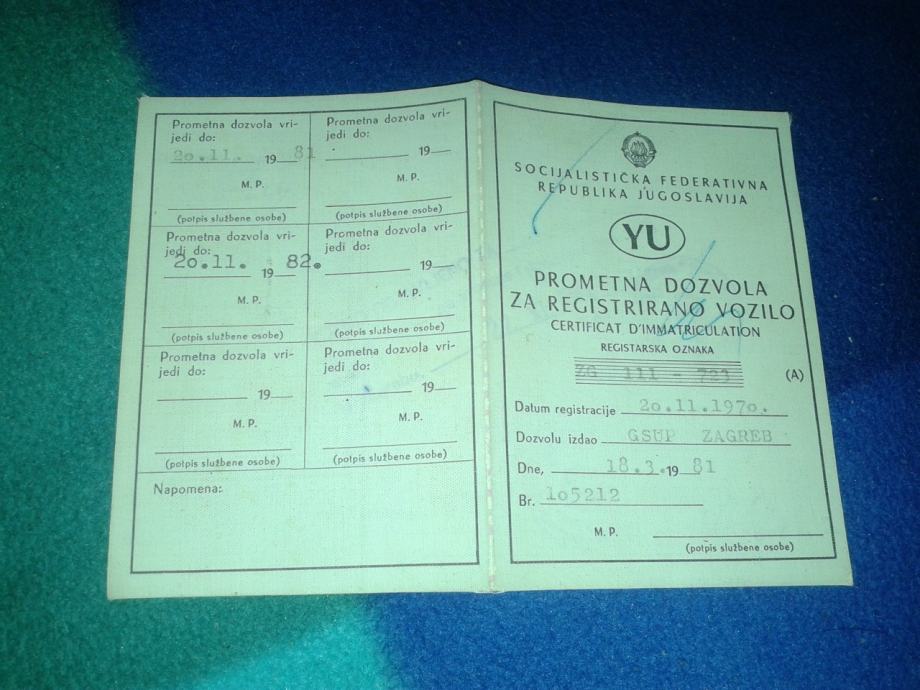 Prometna dozvola vri-
jedi do:
20.11. 19 81
M. P.
(potpis službene osobe)
Prometna dozvola vri-
jedi do:
19
M. P.
(potpis službene osobe)
Prometna dozvola vri-
jedi do:
20.11. 19 82.
M. P.
(potpis službene osobe)
Prometna dozvola vri-
jedi do:
19
M. P.
(potpis službene osobe)
Prometna dozvola vri-
jedi do:
19
M. P.
(potpis službene osobe)
Prometna dozvola vri-
jedi do:
19
M. P.
(potpis službene osobe)
Napomena:
SOCIJALISTIČKA FEDERATIVNA
REPUBLIKA JUGOSLAVIJA
YU
PROMETNA DOZVOLA
ZA REGISTRIRANO VOZILO
CERTIFICAT D'IMMATRICULATION
REGISTARSKA OZNAKA
ZG 111 - 723 (A)
Datum registracije 20.11.1970.
Dozvolu izdao GSUP ZAGREB
Dne, 18.3. 19 81
Br. 105212
M. P.
(potpis službene osobe)